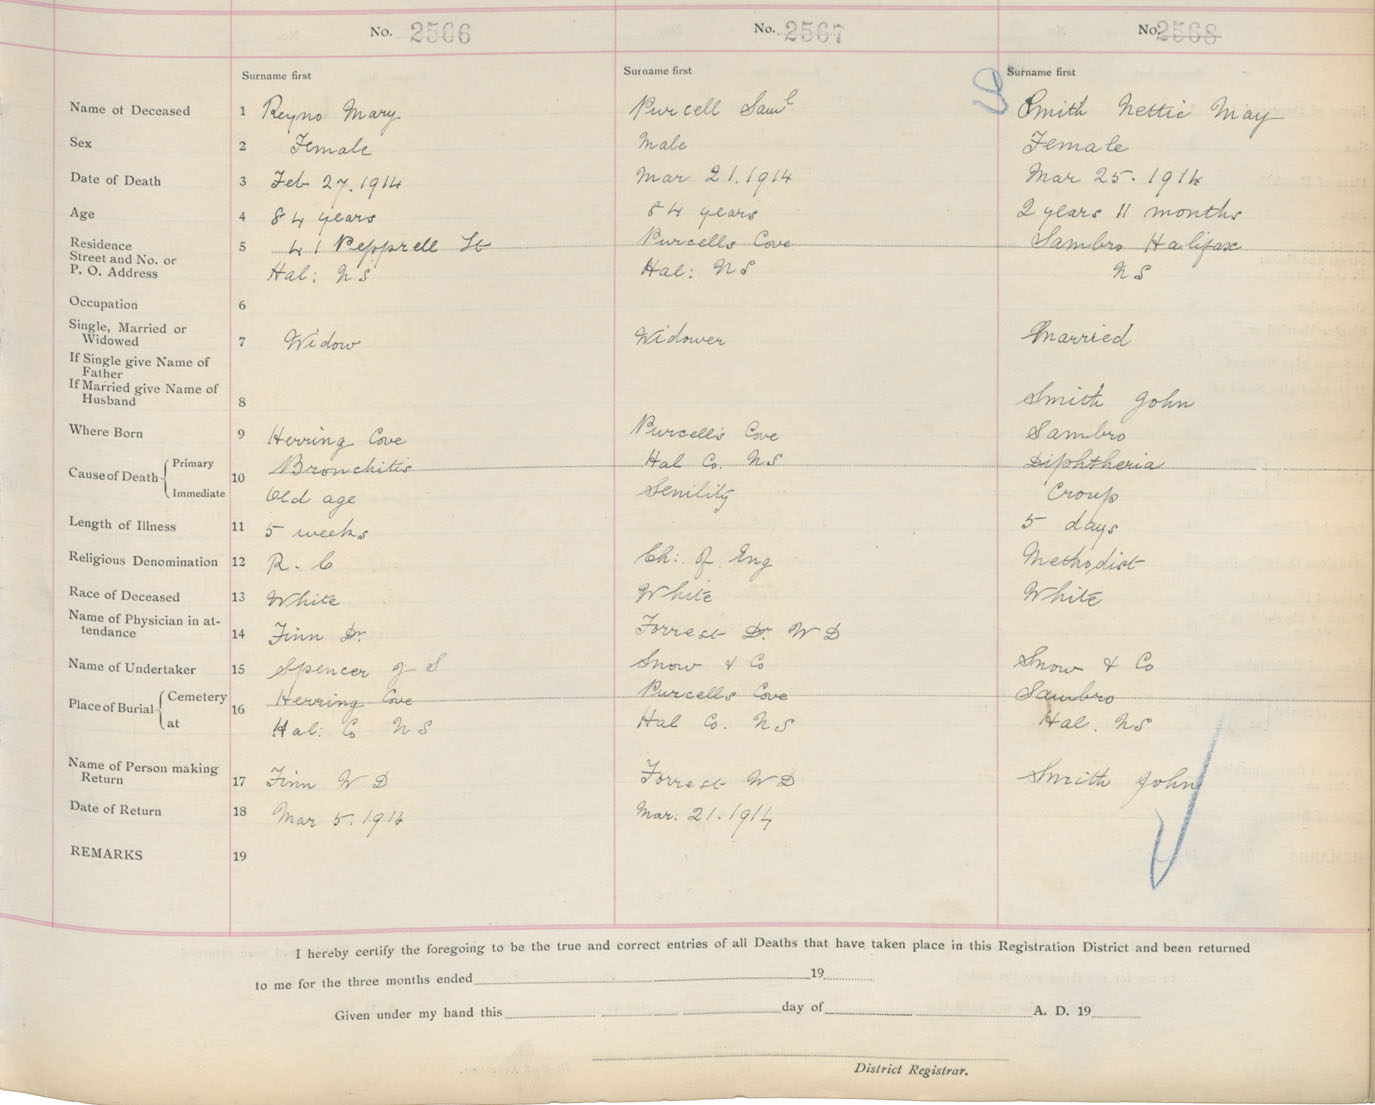 No. 2566
No. 2567
No. 2568
Surname first
Surname first
Surname first
Name of Deceased 1 Reyno Mary Purcell Saml Smith Nettie May
Sex 2 Female Male Female
Date of Death 3 Feb 27. 1914 Mar 21. 1914 Mar 25. 1914
Age 4 84 years 84 years 2 years 11 months
Residence 5 41 Pepprell St Purcells Cove Sambro Halifax
Street and No. or
P. O. Address Hal: NS Hal: NS NS
Occupation 6
Single, Married or
Widowed 7 Widow Widower Married
If Single give Name of
Father
If Married give Name of
Husband 8 Smith John
Where Born 9 Herring Cove Purcell's Cove Sambro
Cause of Death Primary 10 Bronchitis Hal Co. NS Diphtheria
Immediate Old age Senility Croup
Length of Illness 11 5 weeks 5 days
Religious Denomination 12 R. C Ch: of Eng Methodist
Race of Deceased 13 White White White
Name of Physician in at-
tendance 14 Finn Dr. Forrest Dr. W D
Name of Undertaker 15 Spencer J S Snow & Co Snow & Co
Place of Burial Cemetery 16 Herring Cove Purcells Cove Sambro
at Hal: Co NS Hal Co. NS Hal. NS
Name of Person making
Return 17 Finn W D Forrest W D Smith John
Date of Return 18 Mar 5. 1914 Mar: 21. 1914
REMARKS 19
I hereby certify the foregoing to be the true and correct entries of all Deaths that have taken place in this Registration District and been returned
to me for the three months ended 19
Given under my hand this day of A. D. 19
District Registrar.